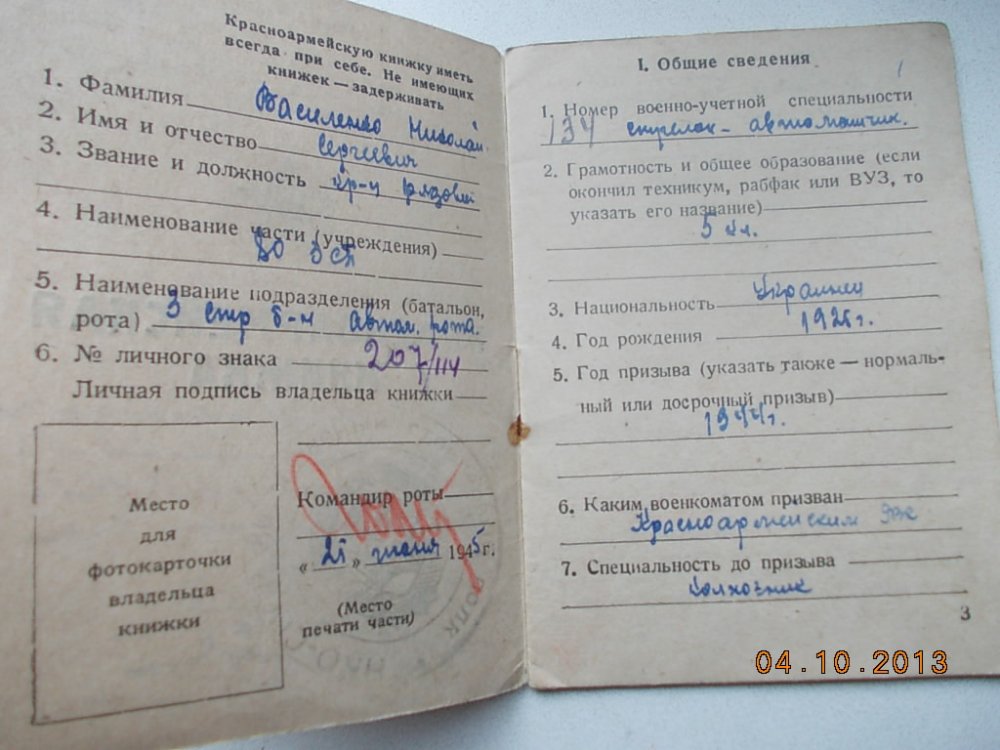 Красноармейскую книжку иметь
всегда при себе. Не имеющих
книжек — задерживать
1. Фамилия Василенко Николай
2. Имя и отчество Сергеевич
3. Звание и должность кр-ц рядовой
4. Наименование части (учреждения)
80 ЗСП
5. Наименование подразделения (батальон,
рота) 3 стр б-н автом. рота.
6. № личного знака 207/114
Личная подпись владельца книжки
Место
для
фотокарточки
владельца
книжки
Командир роты
« » июня 1945 г.
(Место
печати части)
I. Общие сведения
1. Номер военно-учетной специальности
134 стрелок-автоматчик.
2. Грамотность и общее образование (если
окончил техникум, рабфак или ВУЗ, то
указать его название)
5 кл.
3. Национальность Украинец
4. Год рождения 1926 г.
5. Год призыва (указать также — нормаль-
ный или досрочный призыв)
1944 г.
6. Каким военкоматом призван
Красноармейским РВК
7. Специальность до призыва
колхозник
3
04.10.2013